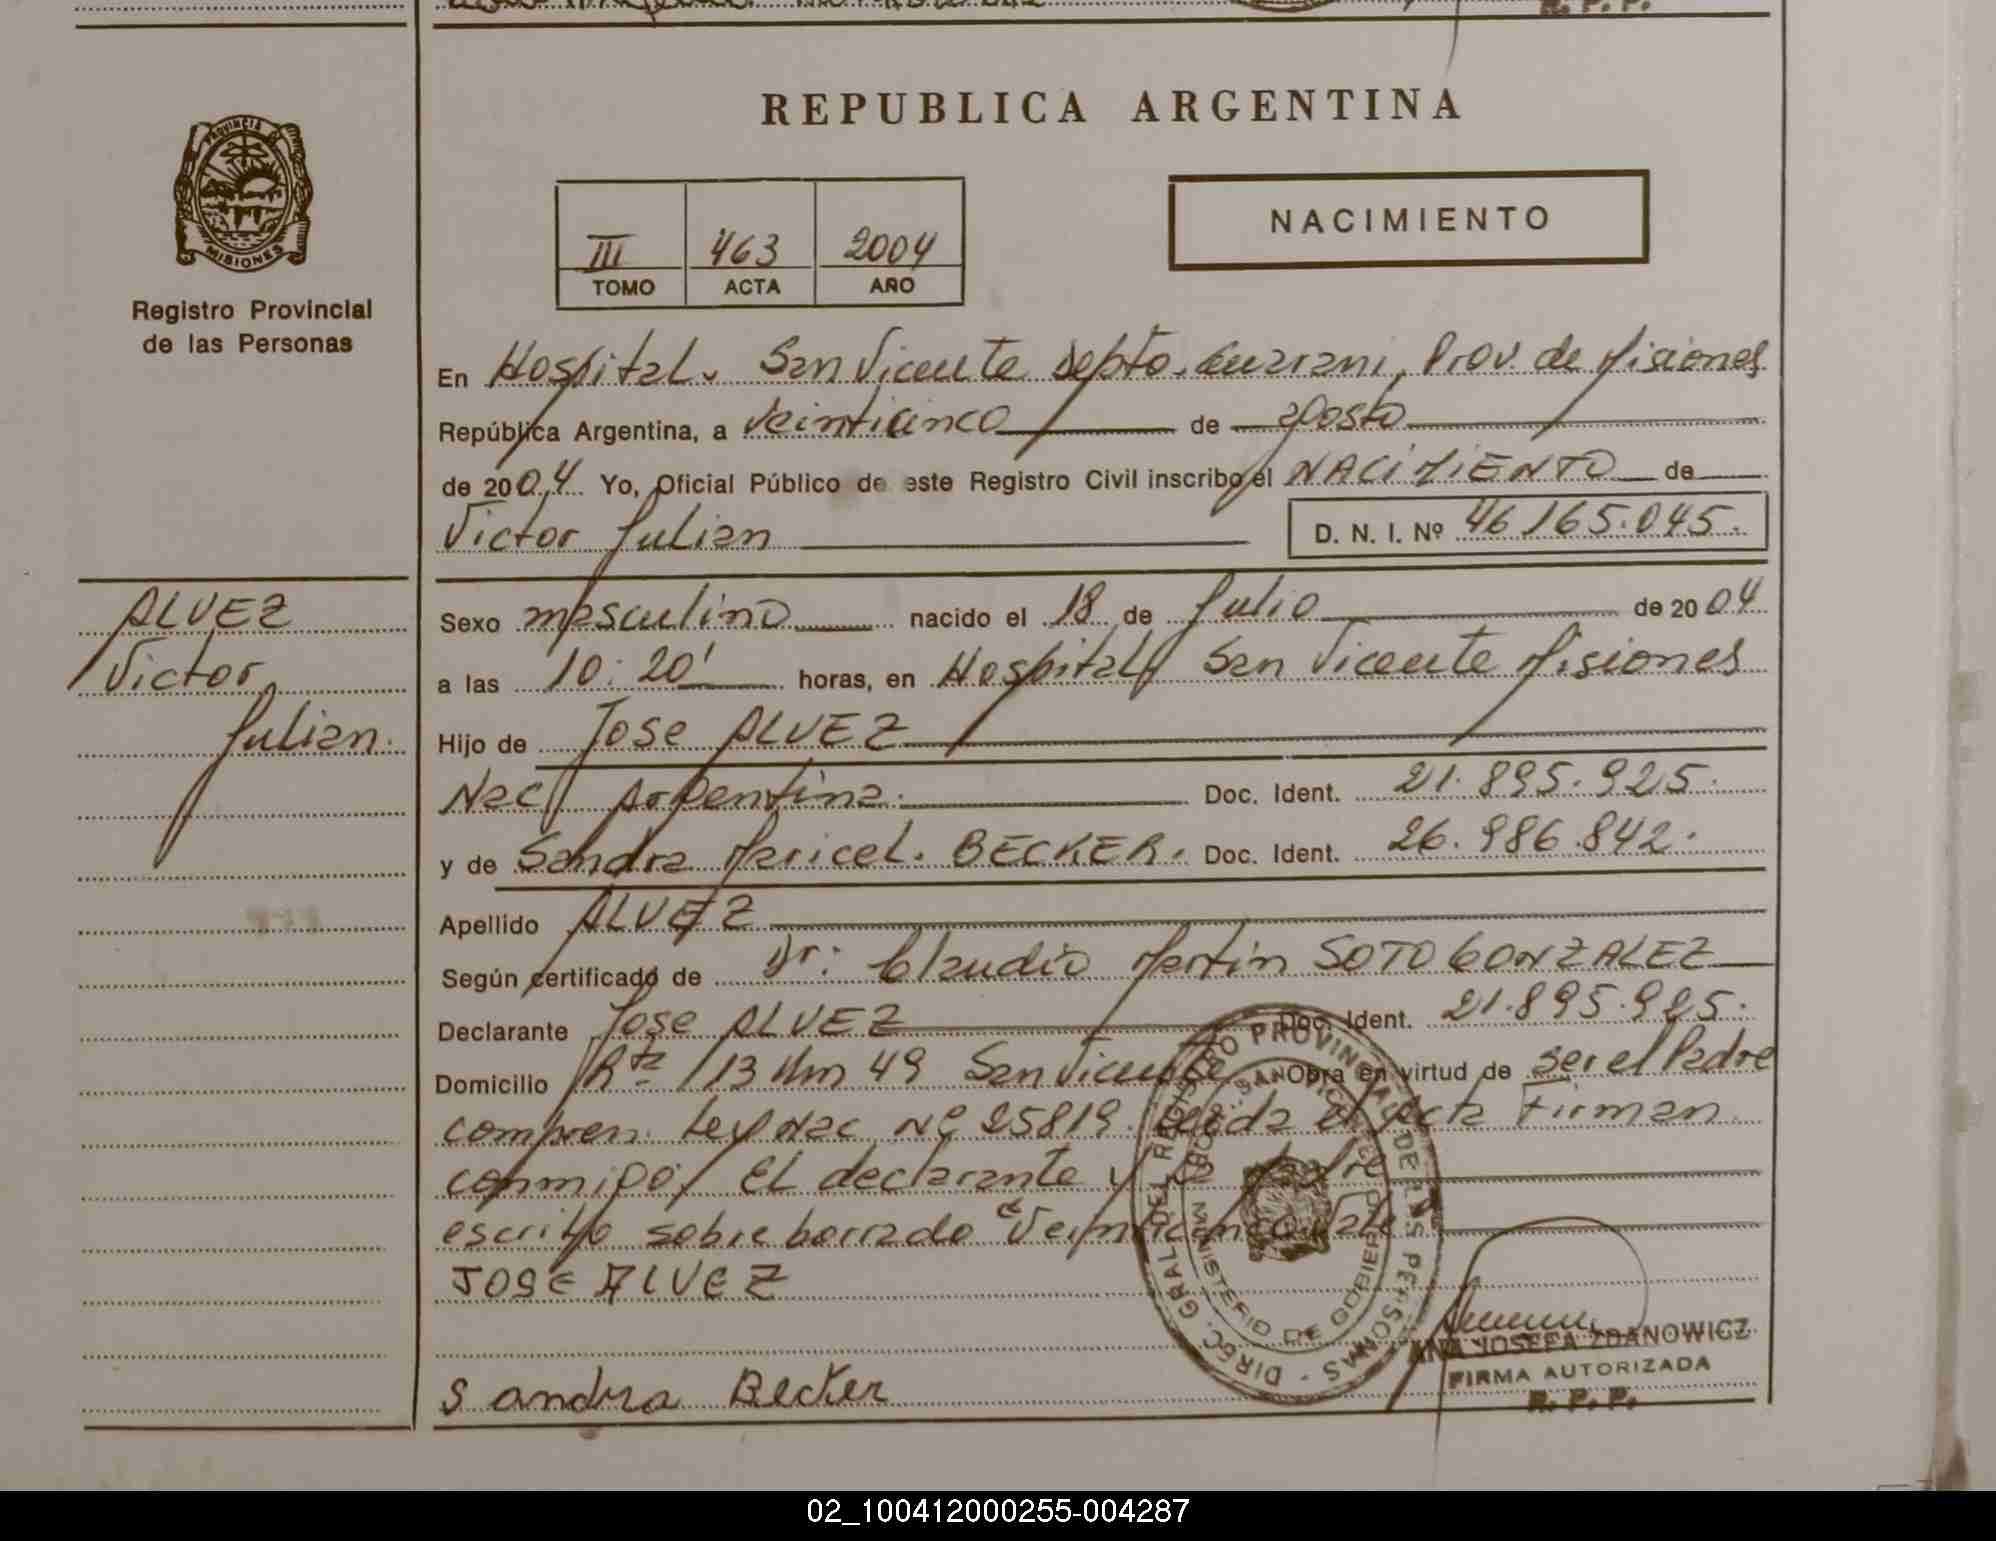 REPUBLICA ARGENTINA
PROVINCIA DE
MISIONES
Registro Provincial
de las Personas
III 463 2004
TOMO ACTA AÑO
NACIMIENTO
En Hospital. San Vicente Depto. Guarani, Prov. de Misiones
República Argentina, a veinticinco de agosto
de 2004 Yo, Oficial Público de este Registro Civil inscribo el NACIMIENTO de
Victor Julian
D. N. I. Nº 46165.045.
ALVEZ
Victor
Julian.
Sexo masculino nacido el 18 de Julio de 2004
a las 10:20' horas, en Hospital San Vicente Misiones
Hijo de Jose ALVEZ
Nac Argentina. Doc. Ident. 21.895.925.
y de Sandra Maricel. BECKER. Doc. Ident. 26.986.842.
Apellido ALVEZ
Según certificado de Dr: Claudio Martin SOTO GONZALEZ
Declarante Jose ALVEZ Doc. Ident. 21.895.925.
Domicilio Rta 13 Km 49 San Vicente Obra en virtud de ser el Padre
compren. Ley Nac Nº 25819. Leida el Acta Firman
conmigo, El declarante y la madre
escrito sobre borrado "Veinticinco" Vale
JOSE ALVEZ
Sandra Becker
DIREC. GRAL DEL REGISTRO PROVINCIAL DE LAS PERSONAS
SAN VICENTE
MINISTERIO DE GOBIERNO
ANA JOSEFA ZDANOWICZ
FIRMA AUTORIZADA
R. P. P.
02_100412000255-004287